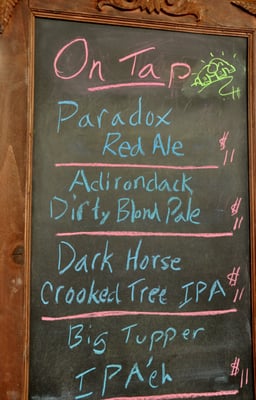 On Tap
Paradox
Red Ale $11
Adirondack
Dirty Blond Pale $11
Dark Horse
Crooked Tree IPA $11
Big Tupper
IPA'eh $11